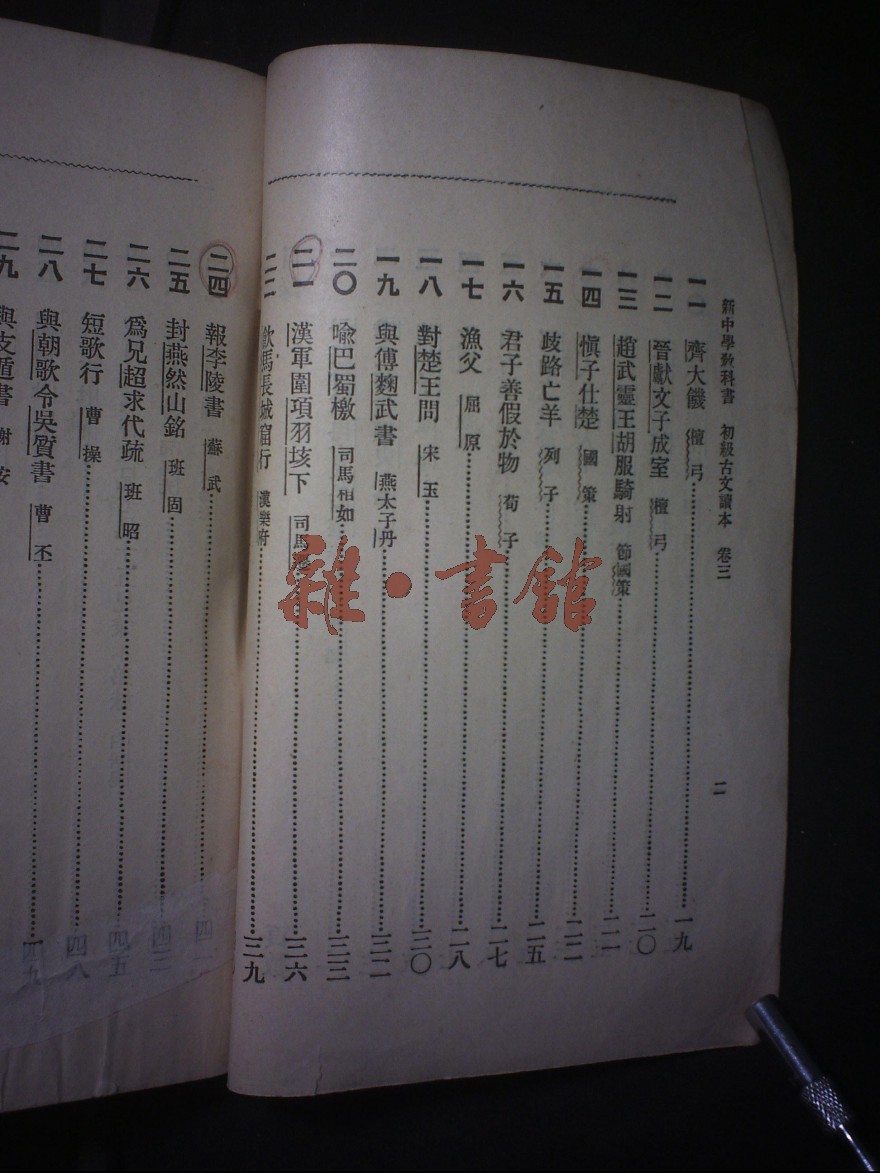 新中學敎科書 初級古文讀本 卷三
二
一一 齊大饑 檀弓 一九
一二 晉獻文子成室 檀弓 二〇
一三 趙武靈王胡服騎射 節國策 二一
一四 愼子仕楚 國策 二二
一五 歧路亡羊 列子 二五
一六 君子善假於物 荀子 二七
一七 漁父 屈原 二八
一八 對楚王問 宋玉 三〇
一九 與傅麴武書 燕太子丹 三二
二〇 喩巴蜀檄 司馬相如 三三
二一 漢軍圍項羽垓下 司馬 三六
二二 飮馬長城窟行 漢樂府 三九
二四 報李陵書 蘇武 四一
二五 封燕然山銘 班固 四三
二六 爲兄超求代疏 班昭 四五
二七 短歌行 曹操 四八
二八 與朝歌令吳質書 曹丕 四九
二九 與支遁書 謝安
雜·書館